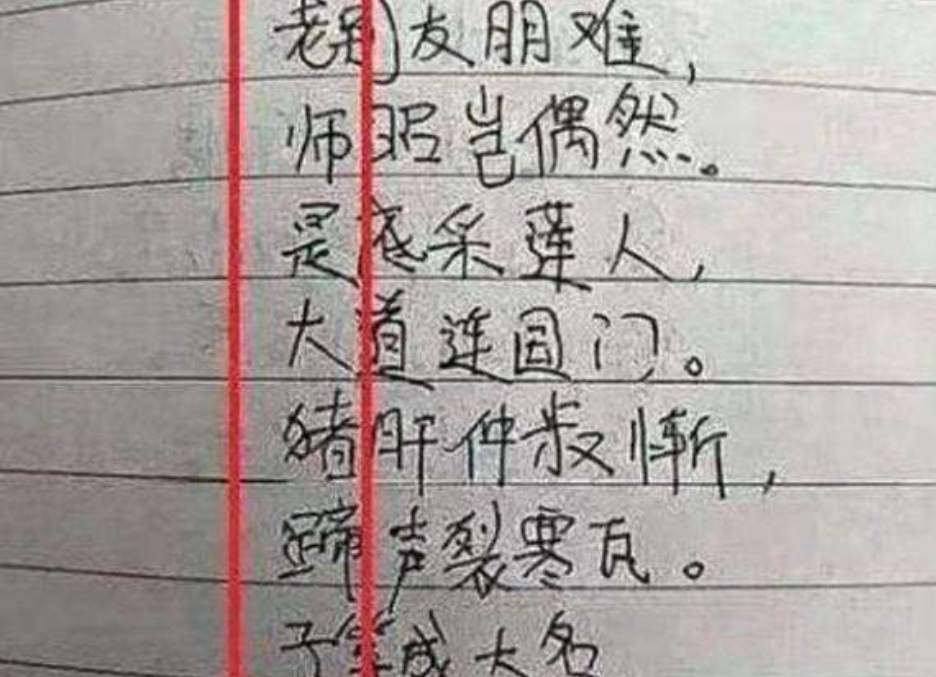 老友朋难,
师昭岂偶然。
是底采莲人,
大道连国门。
猪肝仲叔惭,
蹄声裂寒瓦。
子成大名